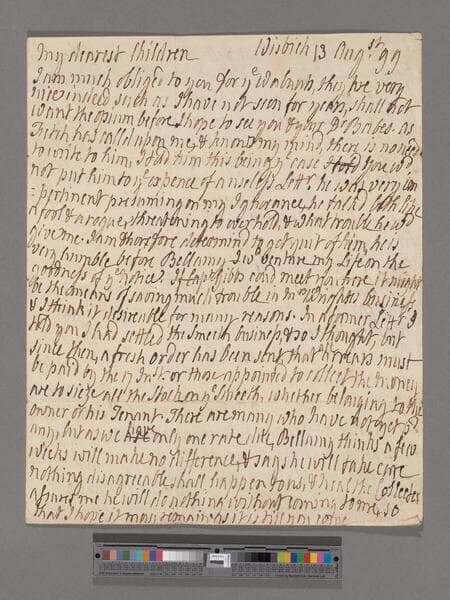 My dearest Children Wisbich 13 Augst 99
I am much obliged to you for ye Walnuts they are very
nice indeed such as I have not seen for years, shall not
want the opium before I hope to see you & your Dr Babes. as
Fitch has called upon me, & knows my mind, there is no need
to write to him, I told him this being ye case I told you wd
not put him to ye expence of a useless Lettr he was very im
=pertinent presuming on my Ignorance, he talkd both like
a fool & a rogue, threatening to overhold, & what trouble he wd
give me. I am therefore determind to get quit of him, he is
very humble before Bellamy I wd venture my Life on the
goodness of ye notice. If Capt Gibbs coud meet you here it might
be the means of saving much trouble in Mrs Wrights business
& I think it desireable for many reasons. In a former Lettr I
told you I had settled the Smeeth business, & so I thought, but
since then, a fresh order has been sent, that arrears must
be paid by the 17 Inst. or those appointed to collect the money
are to sieze all the Stock on ye Smeeth, whether belonging to the
owner or his Tenant. There are many who have not yet pd
any, but as we have only one rate due, Bellamy thinks a few
weeks will make no difference, & says he will take care
nothing disagreable shall happen to us, & he as the Collector
assures me he will do nothing without coming to me, so
that I hope it may remain as it is till you come